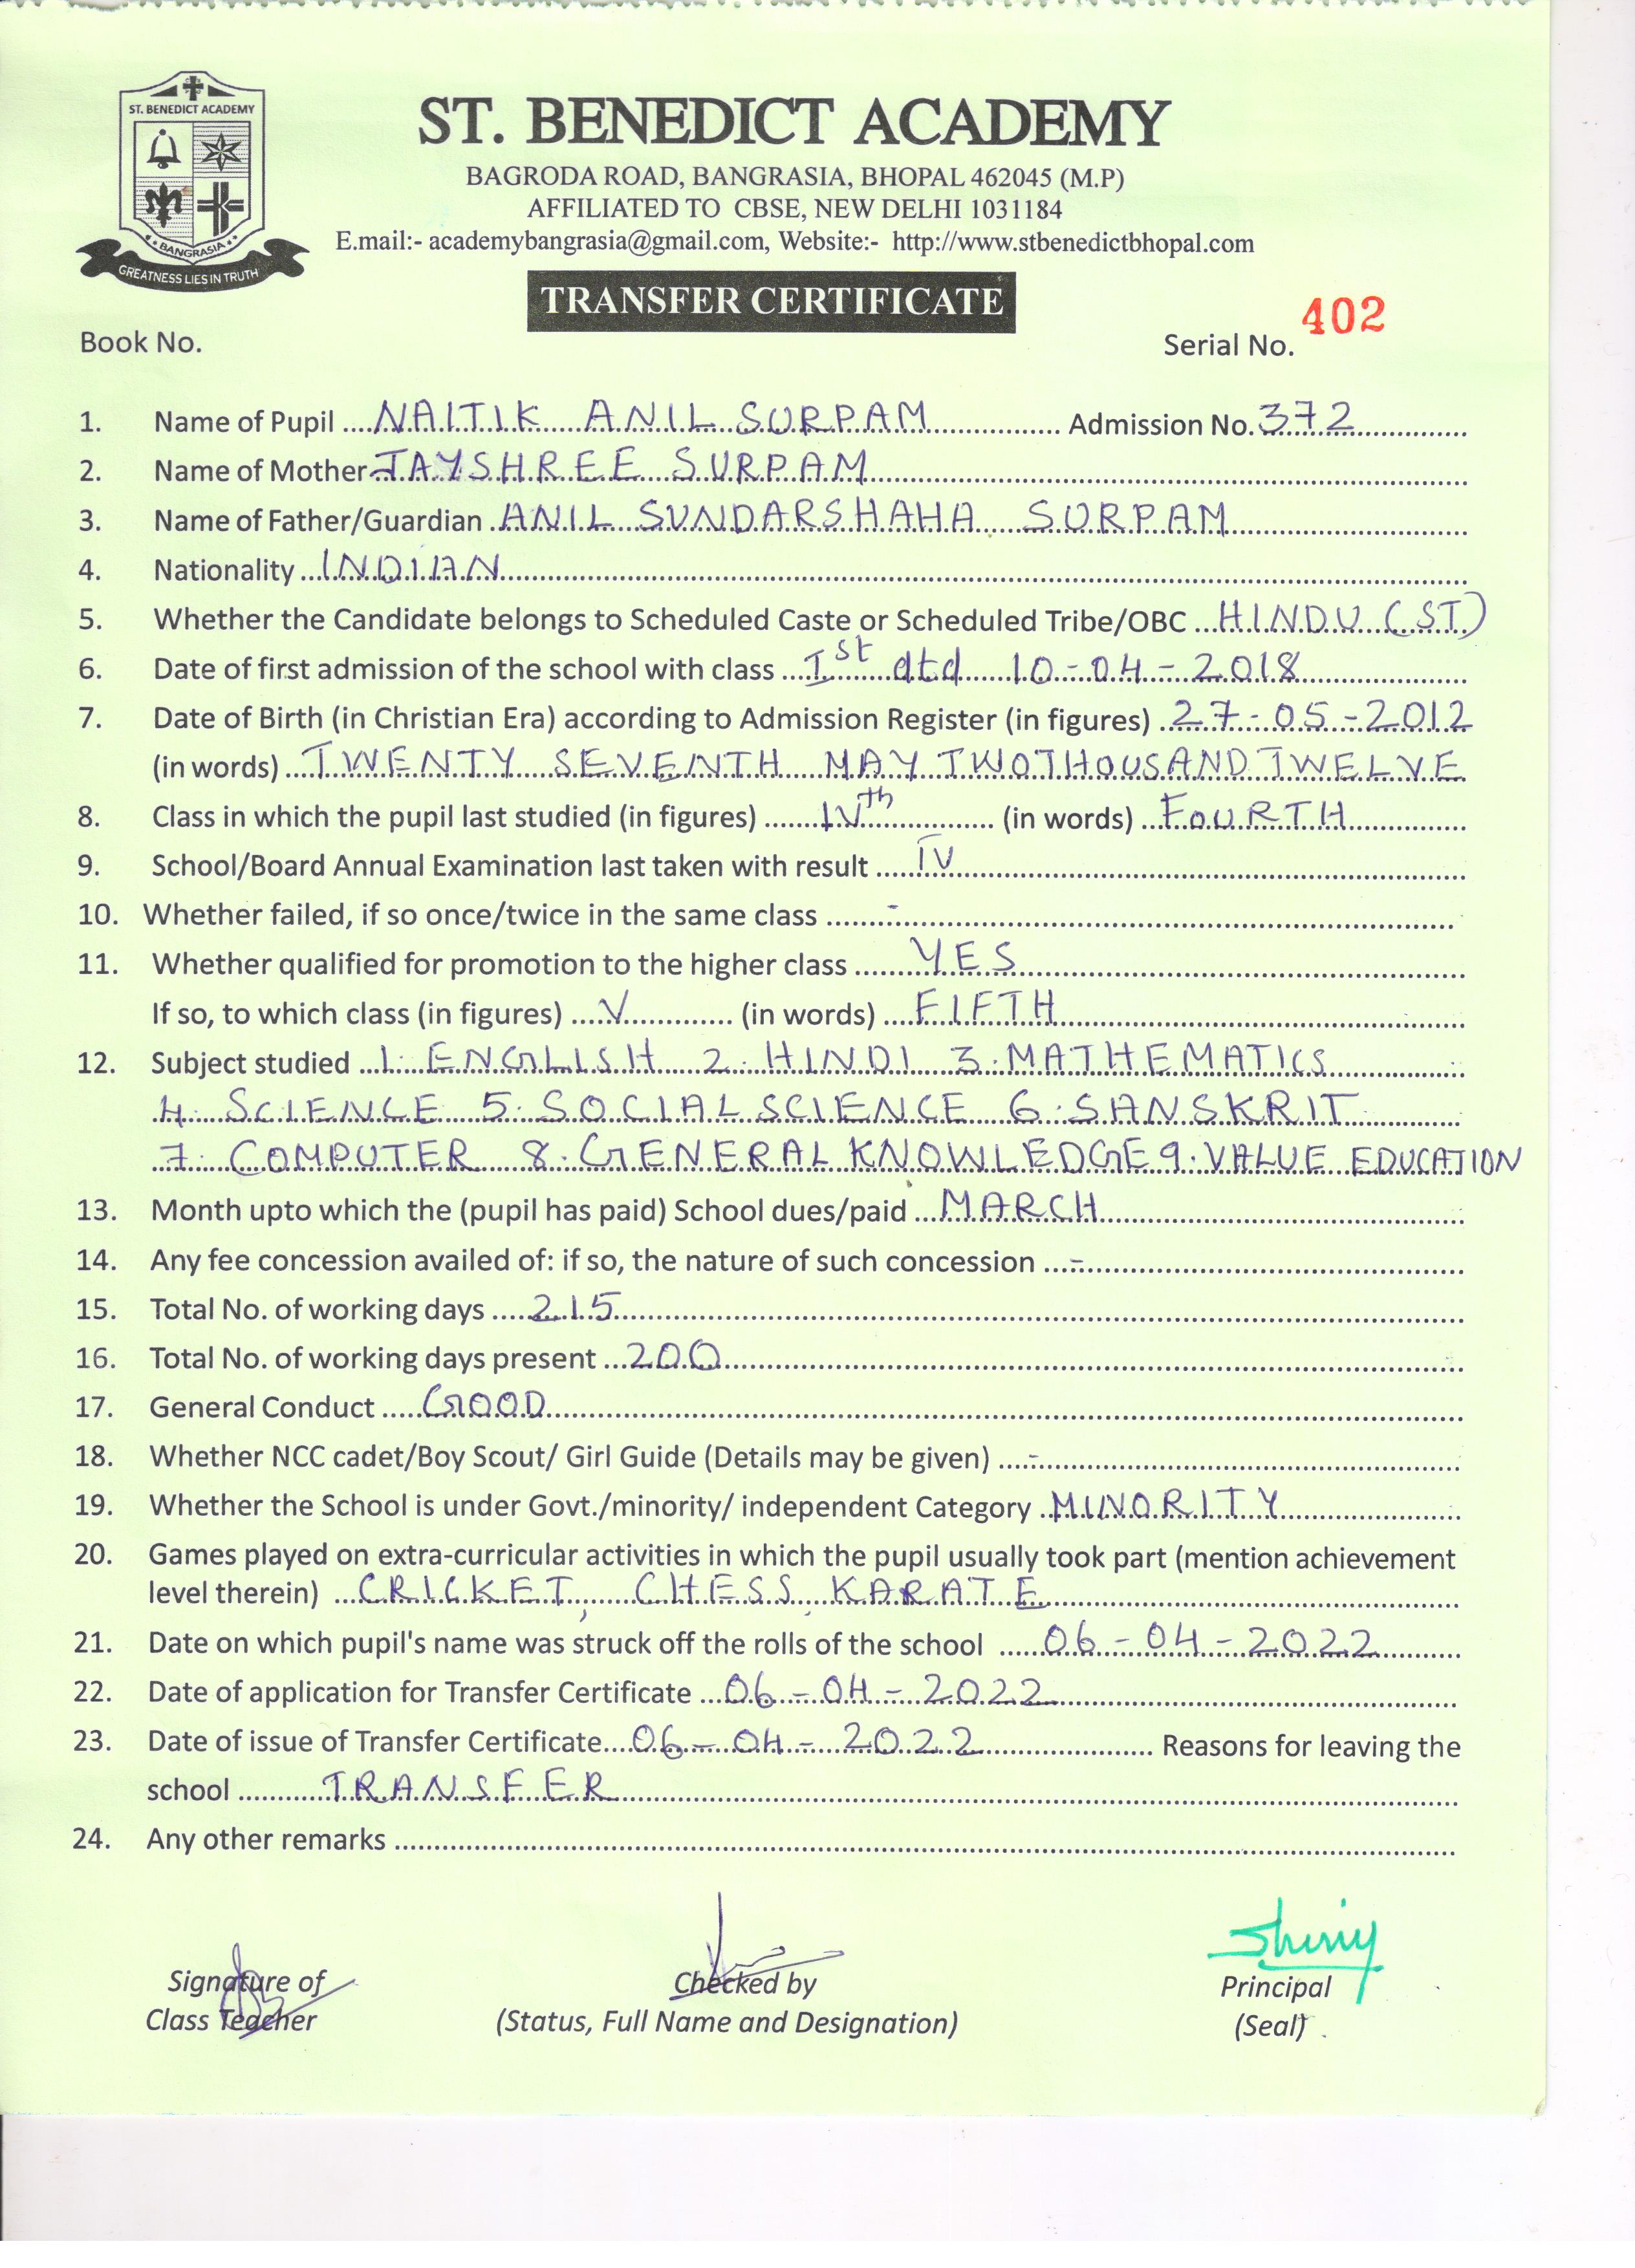 ST. BENEDICT ACADEMY
BANGRASIA
GREATNESS LIES IN TRUTH
ST. BENEDICT ACADEMY
BAGRODA ROAD, BANGRASIA, BHOPAL 462045 (M.P)
AFFILIATED TO CBSE, NEW DELHI 1031184
E.mail:- academybangrasia@gmail.com, Website:- http://www.stbenedictbhopal.com
TRANSFER CERTIFICATE
Book No. Serial No. 402
1. Name of Pupil NAITIK ANIL SURPAM Admission No. 372
2. Name of Mother JAYSHREE SURPAM
3. Name of Father/Guardian ANIL SUNDARSHAHA SURPAM
4. Nationality INDIAN
5. Whether the Candidate belongs to Scheduled Caste or Scheduled Tribe/OBC HINDU (ST)
6. Date of first admission of the school with class Ist dtd 10-04-2018
7. Date of Birth (in Christian Era) according to Admission Register (in figures) 27-05-2012
(in words) TWENTY SEVENTH MAY TWO THOUSAND TWELVE
8. Class in which the pupil last studied (in figures) IVth (in words) FOURTH
9. School/Board Annual Examination last taken with result IV
10. Whether failed, if so once/twice in the same class -
11. Whether qualified for promotion to the higher class YES
If so, to which class (in figures) V (in words) FIFTH
12. Subject studied 1. ENGLISH 2. HINDI 3. MATHEMATICS
4. SCIENCE 5. SOCIAL SCIENCE 6. SANSKRIT
7. COMPUTER 8. GENERAL KNOWLEDGE 9. VALUE EDUCATION
13. Month upto which the (pupil has paid) School dues/paid MARCH
14. Any fee concession availed of: if so, the nature of such concession -
15. Total No. of working days 215
16. Total No. of working days present 200
17. General Conduct GOOD
18. Whether NCC cadet/Boy Scout/ Girl Guide (Details may be given) -
19. Whether the School is under Govt./minority/ independent Category MINORITY
20. Games played on extra-curricular activities in which the pupil usually took part (mention achievement
level therein) CRICKET, CHESS, KARATE
21. Date on which pupil's name was struck off the rolls of the school 06-04-2022
22. Date of application for Transfer Certificate 06-04-2022
23. Date of issue of Transfer Certificate 06-04-2022 Reasons for leaving the
school TRANSFER
24. Any other remarks
Signature of Checked by Principal
Class Teacher (Status, Full Name and Designation) (Seal)